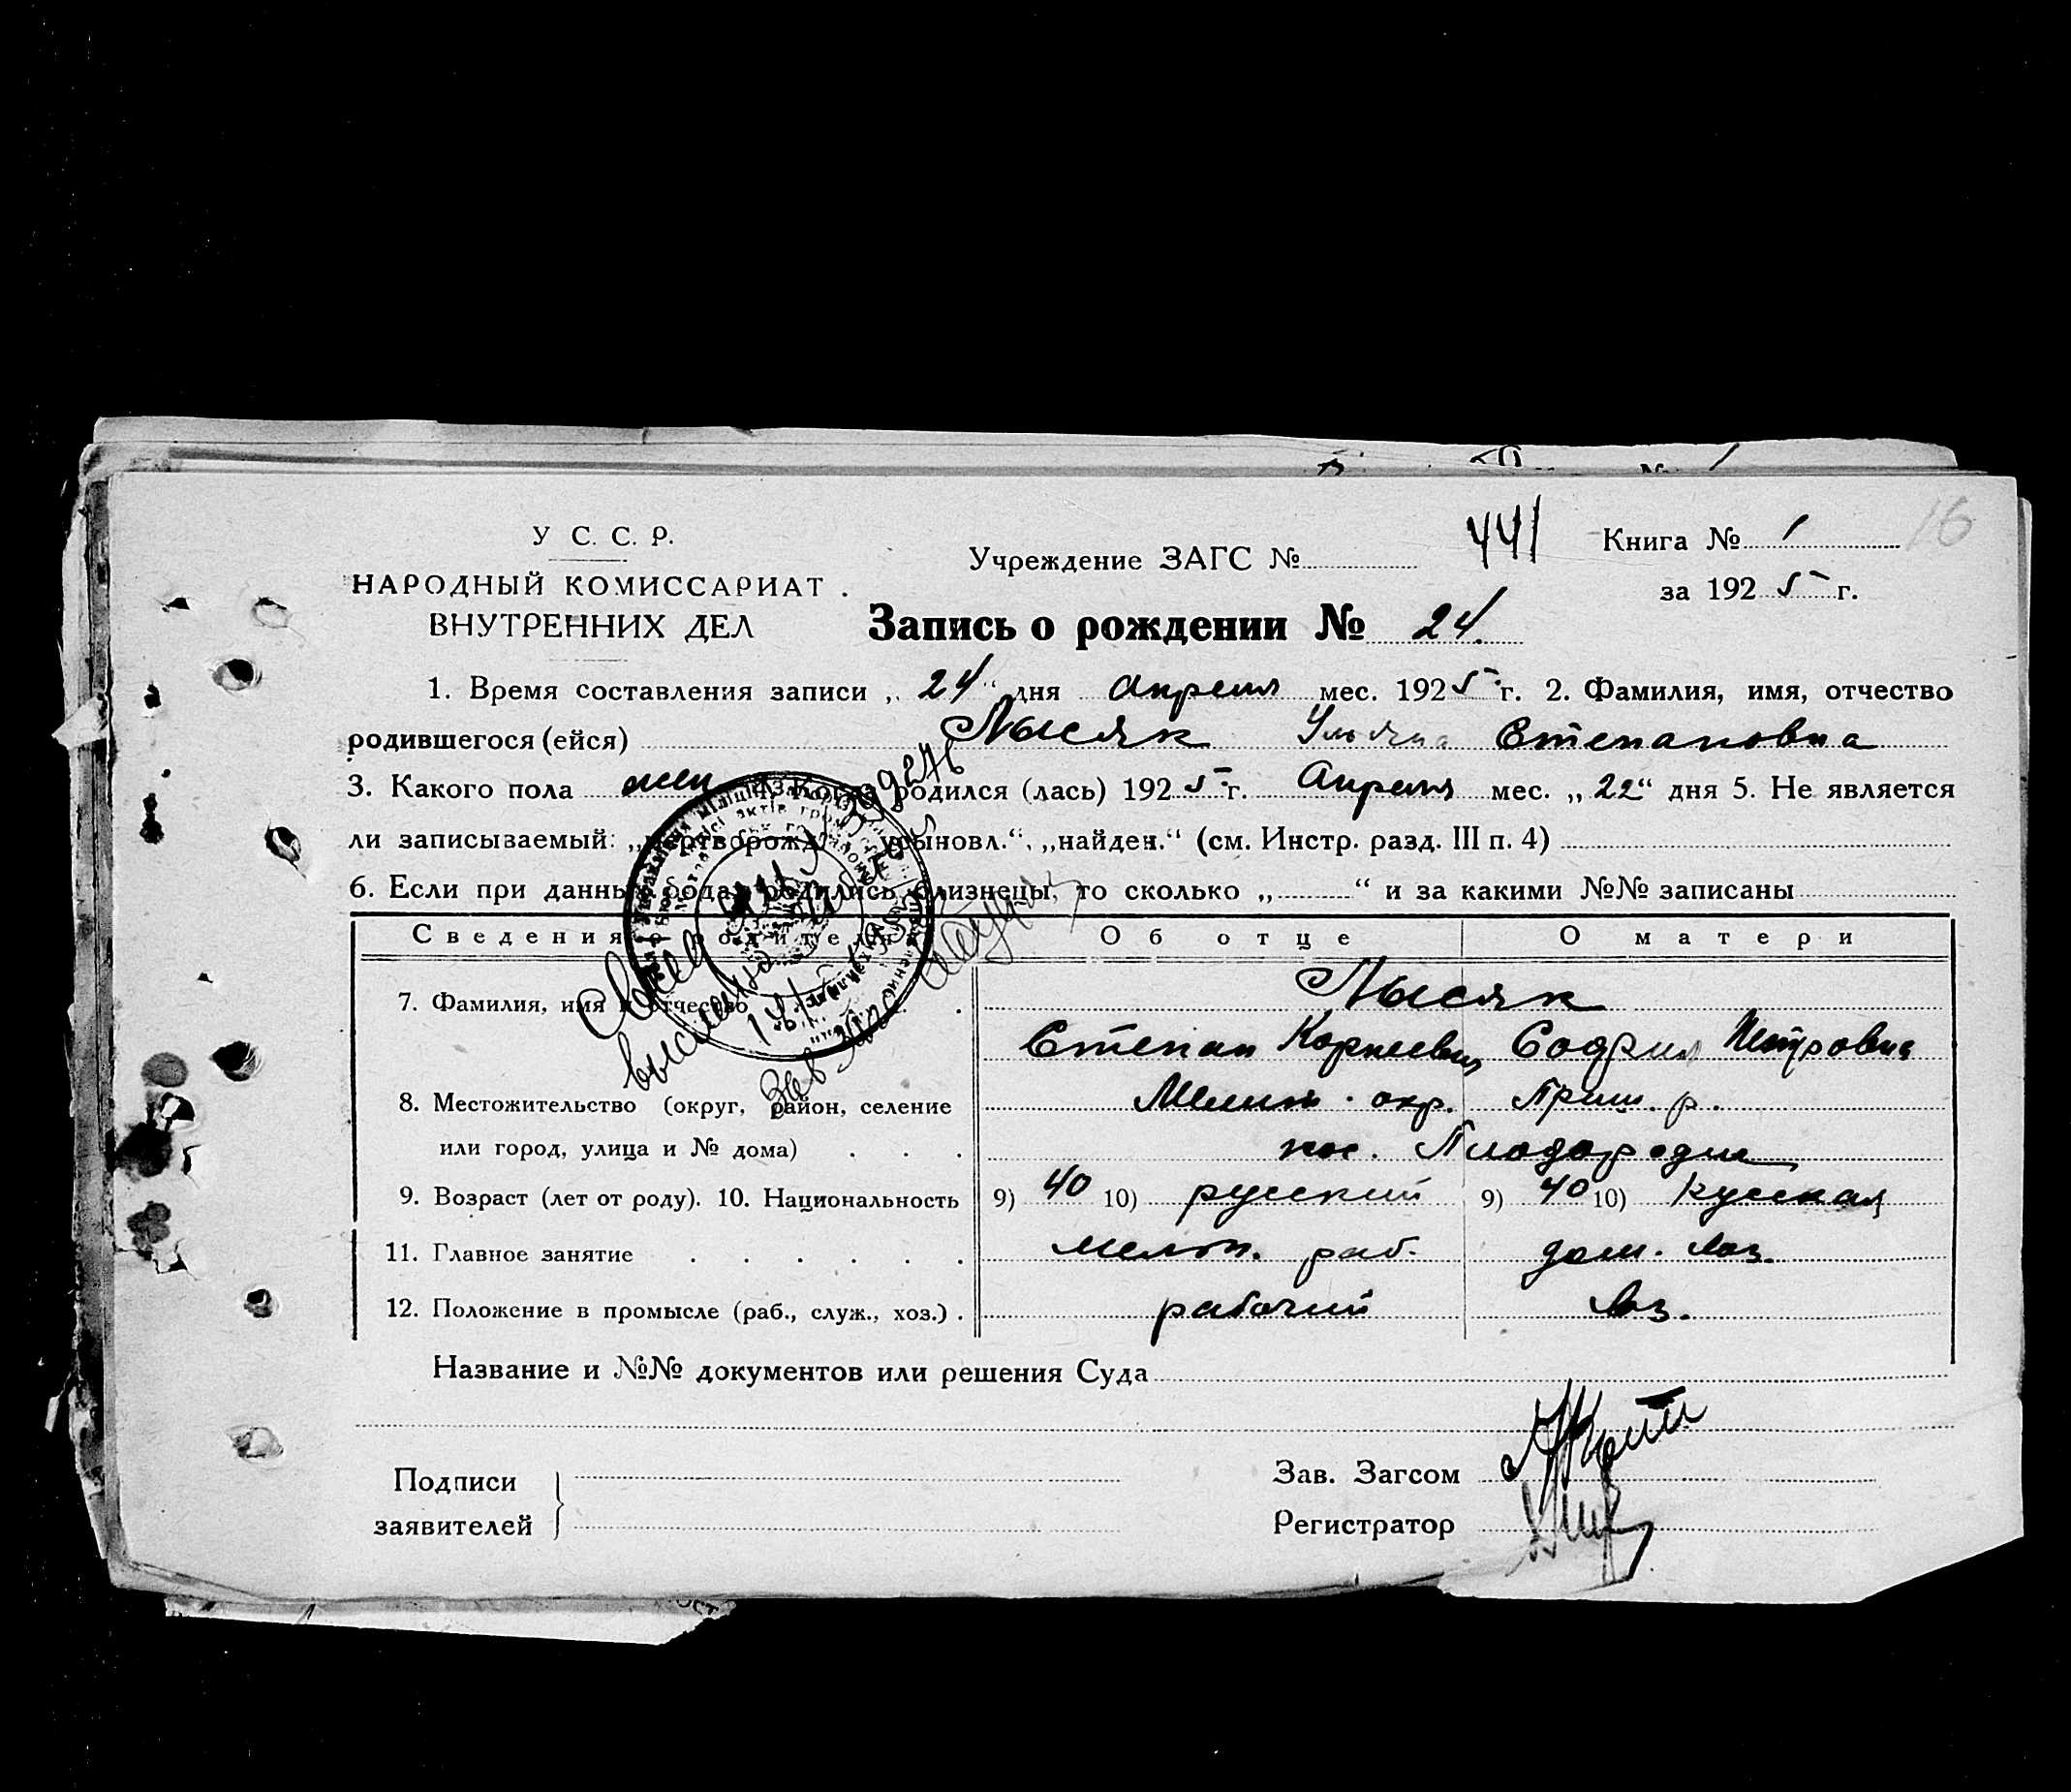 У С. С. Р.
НАРОДНЫЙ КОМИССАРИАТ
ВНУТРЕННИХ ДЕЛ
Учреждение ЗАГС № 441
Книга № 1
16
за 1925 г.
Запись о рождении № 24
1. Время составления записи „24“ дня Апреля мес. 1925 г. 2. Фамилия, имя, отчество
родившегося (ейся) Лысяк Ульяна Степановна
3. Какого пола жен родился (лась) 1925 г. Апреля мес. „22“ дня 5. Не является
ли записываемый: „мертворожд „найден.“ (см. Инстр. разд. III п. 4)
6. Если при данных родах родились близнецы, то сколько „ “ и за какими №№ записаны
Сведения Об отце О матери
7. Фамилия, имя и отчество Лысяк
Степан Корнеевич София Петровна
8. Местожительство (округ, район, селение Мелит. окр. Приш. р.
или город, улица и № дома) пос. Плодородие
9. Возраст (лет от роду). 10. Национальность 9) 40 10) русский 9) 40 10) Русская
11. Главное занятие раб. дом. хоз.
12. Положение в промысле (раб., служ., хоз.) рабочий хоз.
Название и №№ документов или решения Суда
Подписи
заявителей
Зав. Загсом
Регистратор